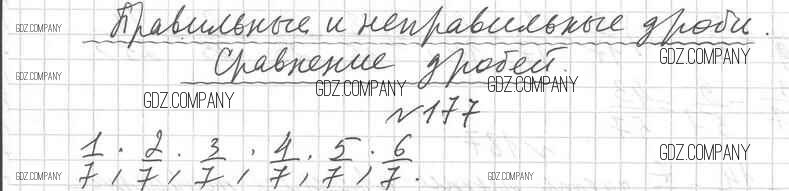 Правильные и неправильные дроби.
Сравнение дробей.
№177
1/7; 2/7; 3/7; 4/7; 5/7; 6/7.
GDZ.COMPANY
GDZ.COMPANY
GDZ.COMPANY
GDZ.COMPANY
GDZ.COMPANY
GDZ.COMPANY
GDZ.COMPANY
GDZ.COMPANY
GDZ.COMPANY